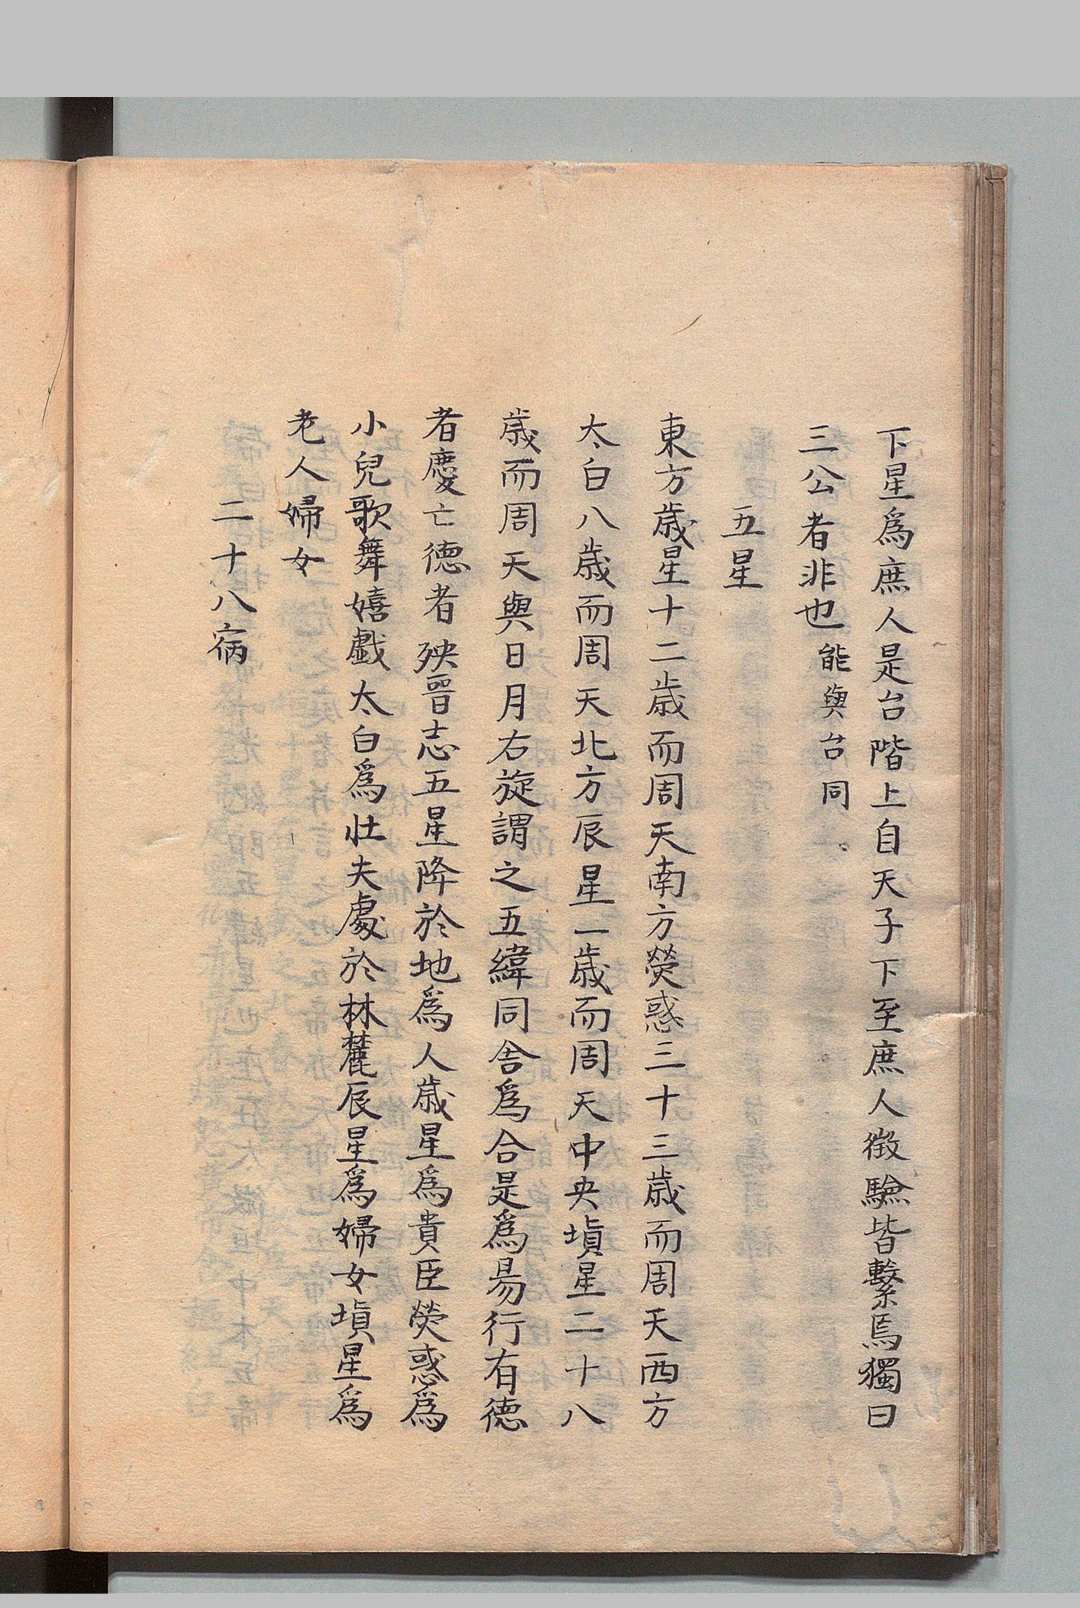 下星爲庶人是台階上自天子下至庶人徵驗皆繫焉獨曰
三公者非也能與台同
五星
東方歳星十二歳而周天南方熒惑三十三歳而周天西方
太白八歳而周天北方辰星一歳而周天中央塡星二十八
歳而周天與日月右旋謂之五緯同舎爲合是爲昜行有徳
者慶亡徳者殃晉志五星降於地爲人歳星爲貴臣熒惑爲
小兒歌舞嬉戯太白爲壮夫處於林麓辰星爲婦女塡星爲
老人婦女
二十八㾕